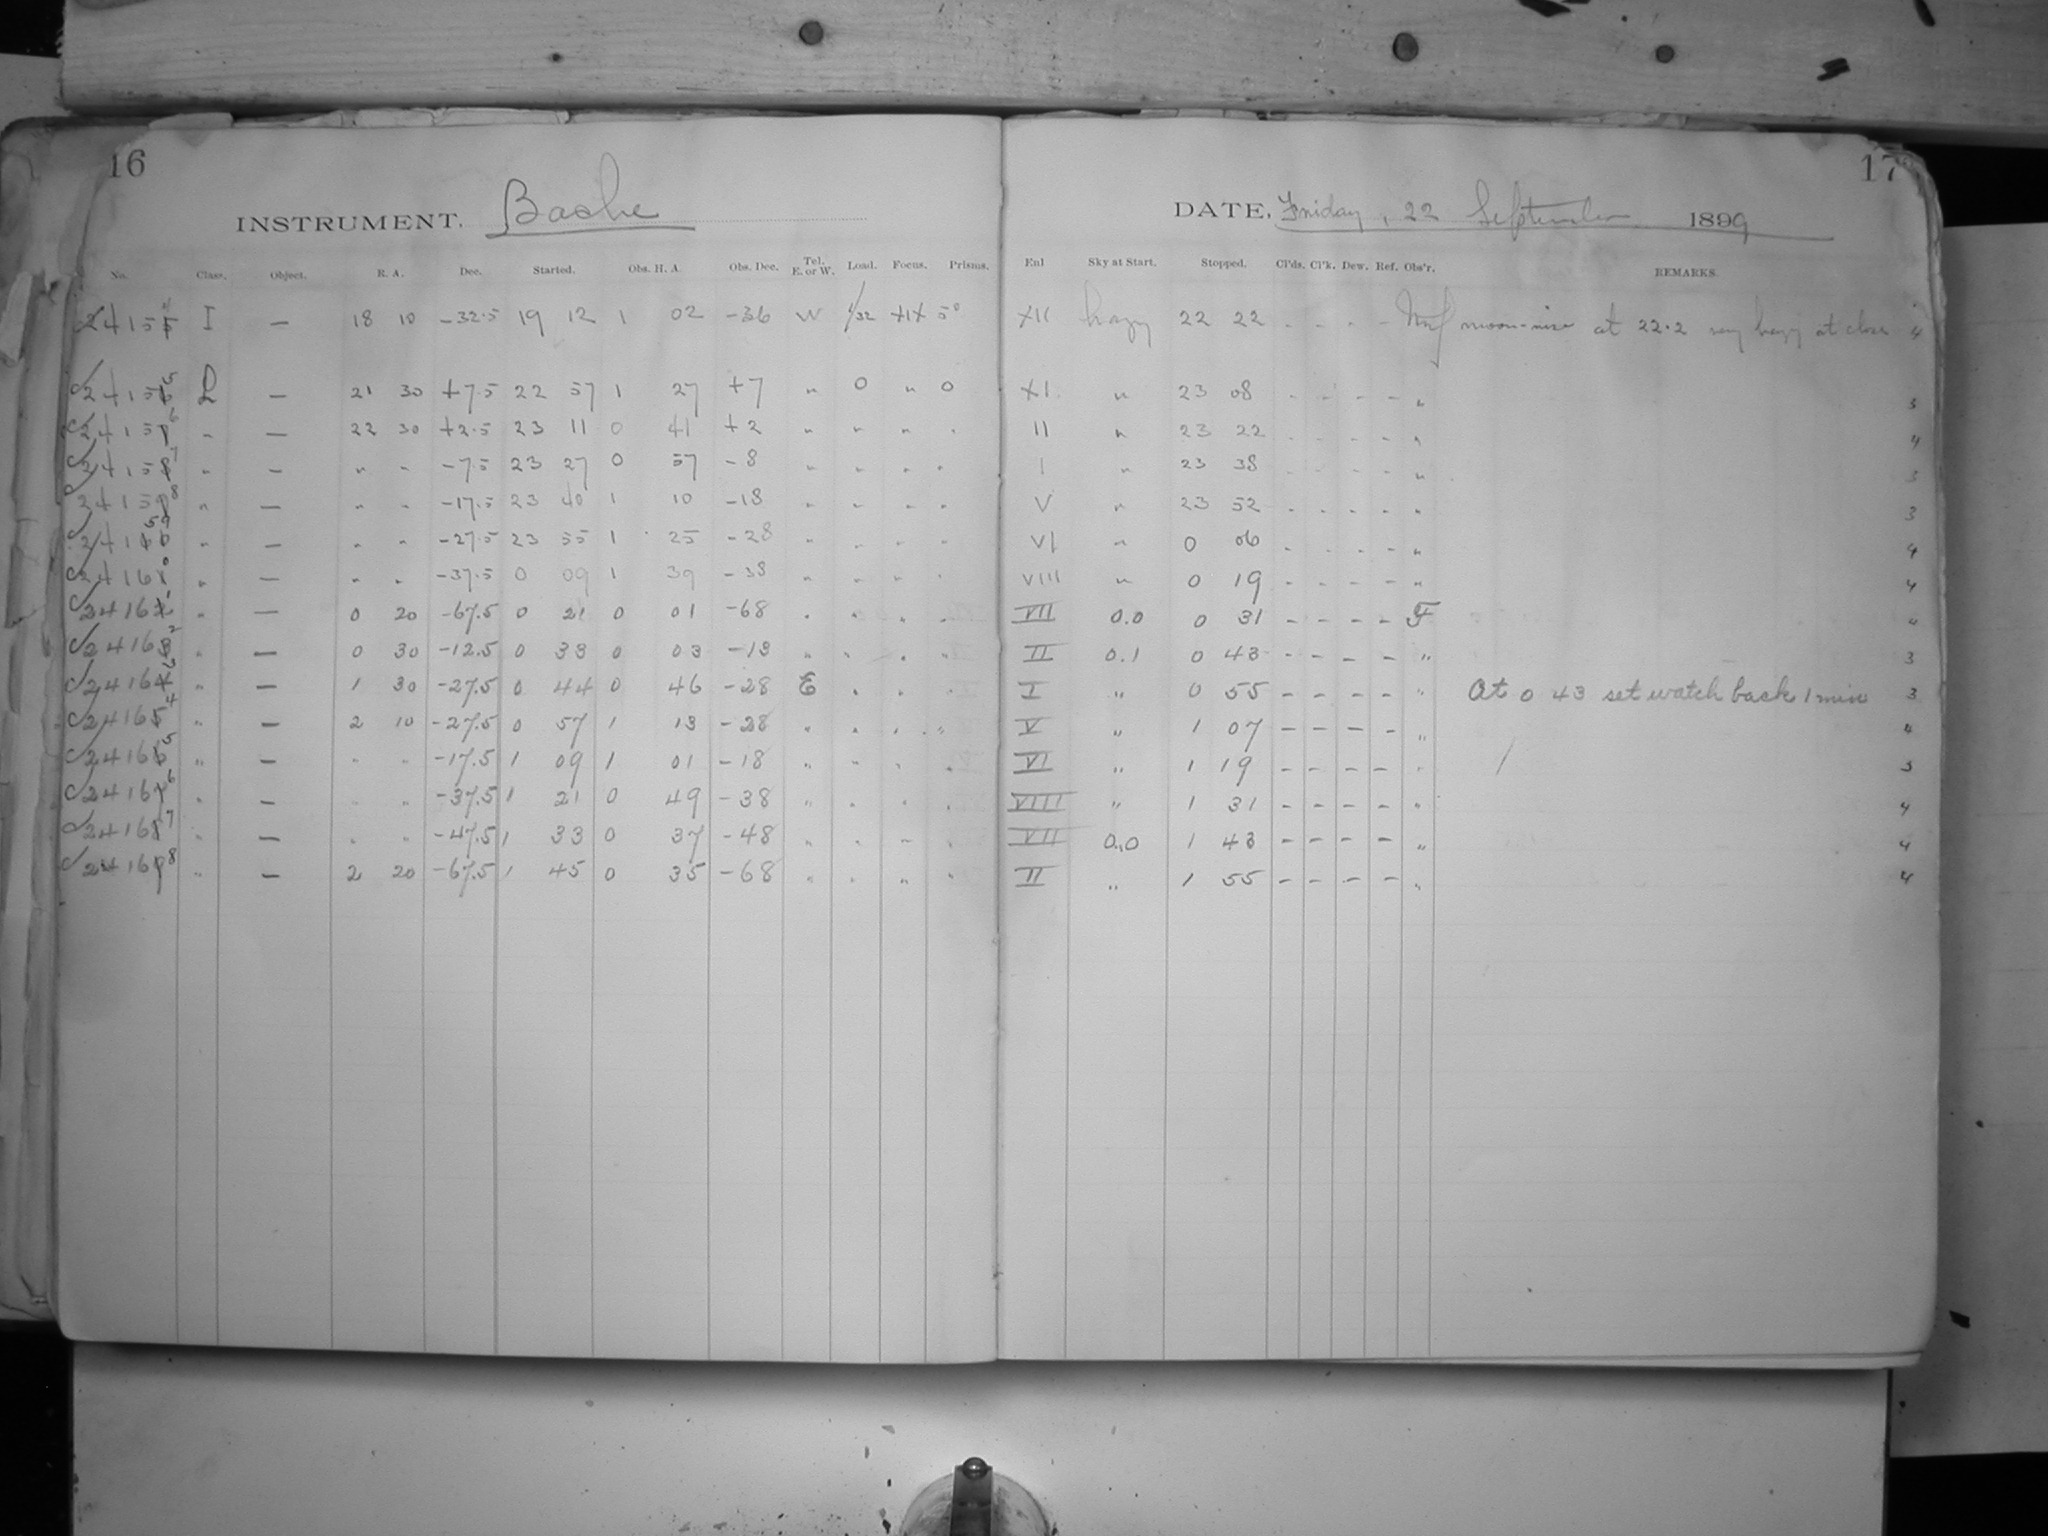 16
17
INSTRUMENT. Bache
DATE, Friday, 22 September 1899
No. Class. Object. R. A. Dec. Started. Obs. H. A. Obs. Dec. Tel. E. or W. Load. Focus. Prisms. Enl Sky at Start. Stopped. Cl'ds. Cl'k. Dew. Ref. Obs'r. REMARKS.
24154 I — 18 10 -32.5 19 12 1 02 -36 W 1/32 XIX 5° XII hazy 22 22 - - - - moon-rise at 22.2 very hazy at close 4
24155 L — 21 30 +7.5 22 57 1 27 +7 " 0 " 0 XI " 23 08 - - - - " 3
24156 " — 22 30 +2.5 23 11 0 41 +2 " " " " II " 23 22 - - - - " 4
24157 " — " " -7.5 23 27 0 57 -8 " " " " I " 23 38 - - - - " 3
24158 " — " " -17.5 23 40 1 10 -18 " " " " V " 23 52 - - - - " 3
24159 " — " " -27.5 23 55 1 25 -28 " " " " VI " 0 06 - - - - " 4
24160 " — " " -37.5 0 09 1 39 -38 " " " " VIII " 0 19 - - - - " 4
24161 " — 0 20 -67.5 0 21 0 01 -68 " " " " VII 0.0 0 31 - - - - F 4
24162 " — 0 30 -12.5 0 33 0 03 -13 " " " " II 0.1 0 43 - - - - " 3
24163 " — 1 30 -27.5 0 44 0 46 -28 E " " " I " 0 55 - - - - " At 0 43 set watch back 1 min 3
24164 " — 2 10 -27.5 0 57 1 13 -28 " " " " V " 1 07 - - - - " 4
24165 " — " " -17.5 1 09 1 01 -18 " " " " VI " 1 19 - - - - " 3
24166 " — " " -37.5 1 21 0 49 -38 " " " " VIII " 1 31 - - - - " 4
24167 " — " " -47.5 1 33 0 37 -48 " " " " VII 0.0 1 43 - - - - " 4
24168 " — 2 20 -67.5 1 45 0 35 -68 " " " " II " 1 55 - - - - " 4